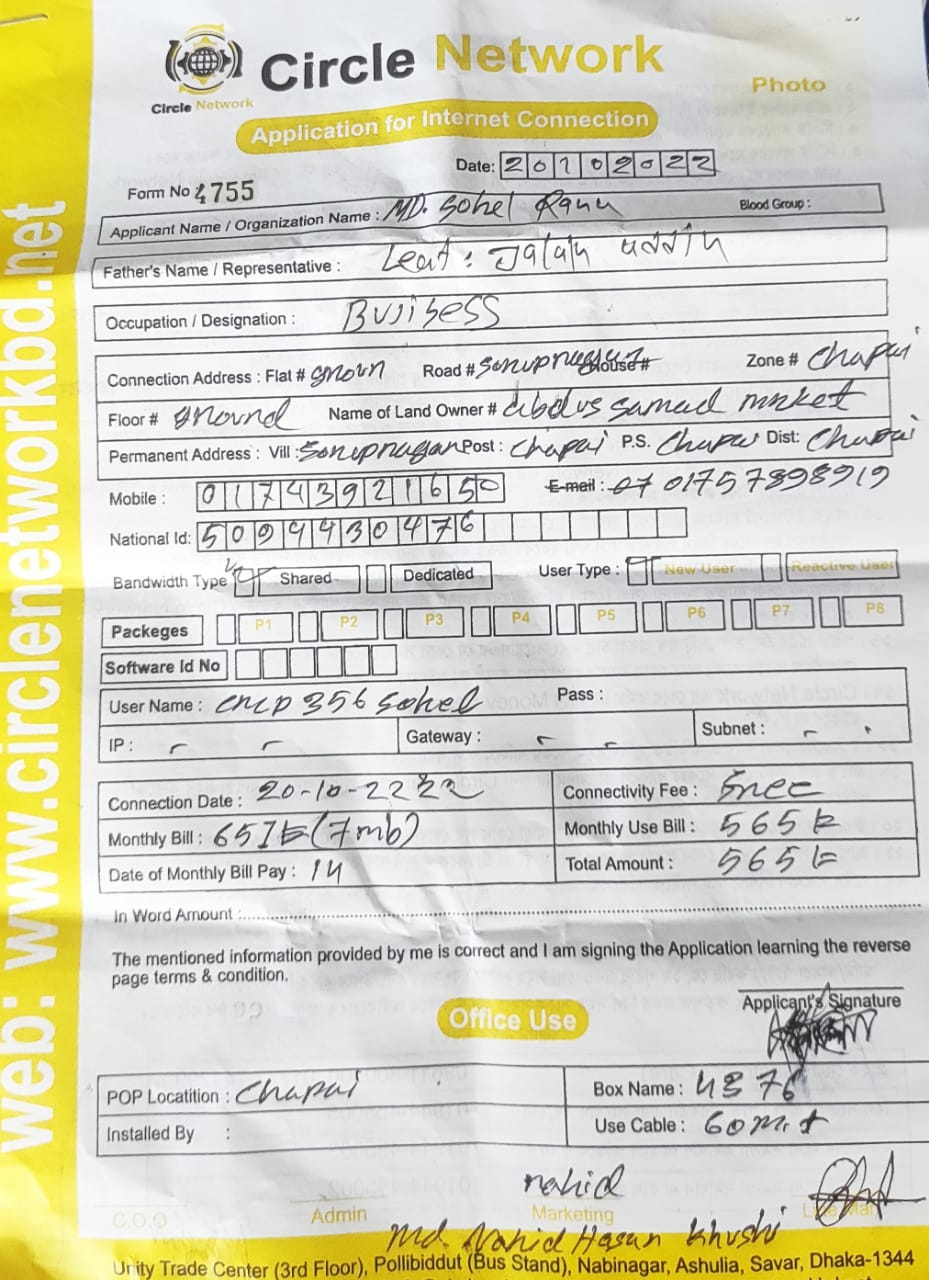 Circle Network
Circle Network
Photo
Application for Internet Connection
Date: 20102022
Form No 4755
Applicant Name / Organization Name : MD. Sohel Rana Blood Group :
Father's Name / Representative : Leat :
Occupation / Designation : Busibess
Connection Address : Flat # gnoun Road # Sonupnagar House # Zone # Chapai
Floor # ground Name of Land Owner # abdus samad market
Permanent Address : Vill : Sonupnagar Post : Chapai P.S. Chapai Dist: Chapai
Mobile : 01743921650 E-mail : 01757898919
National Id: 5094430476
Bandwidth Type Shared Dedicated User Type : New User Reactive User
Packeges P1 P2 P3 P4 P5 P6 P7 P8
Software Id No
User Name : cncp356sohel Pass :
IP : - - Gateway : - - Subnet : - -
Connection Date : 20-10-2222 Connectivity Fee : Free
Monthly Bill : 657 (7mb) Monthly Use Bill : 565
Date of Monthly Bill Pay : 14 Total Amount : 565
In Word Amount :
The mentioned information provided by me is correct and I am signing the Application learning the reverse
page terms & condition.
Applicant's Signature
Office Use
POP Locatition : Chapai Box Name : 4376
Installed By : Use Cable : 60
nahid
C.O.O Admin Marketing Line Man
Md. Nahid Hasan Khushi
Unity Trade Center (3rd Floor), Pollibiddut (Bus Stand), Nabinagar, Ashulia, Savar, Dhaka-1344
web: www.circlenetworkbd.net